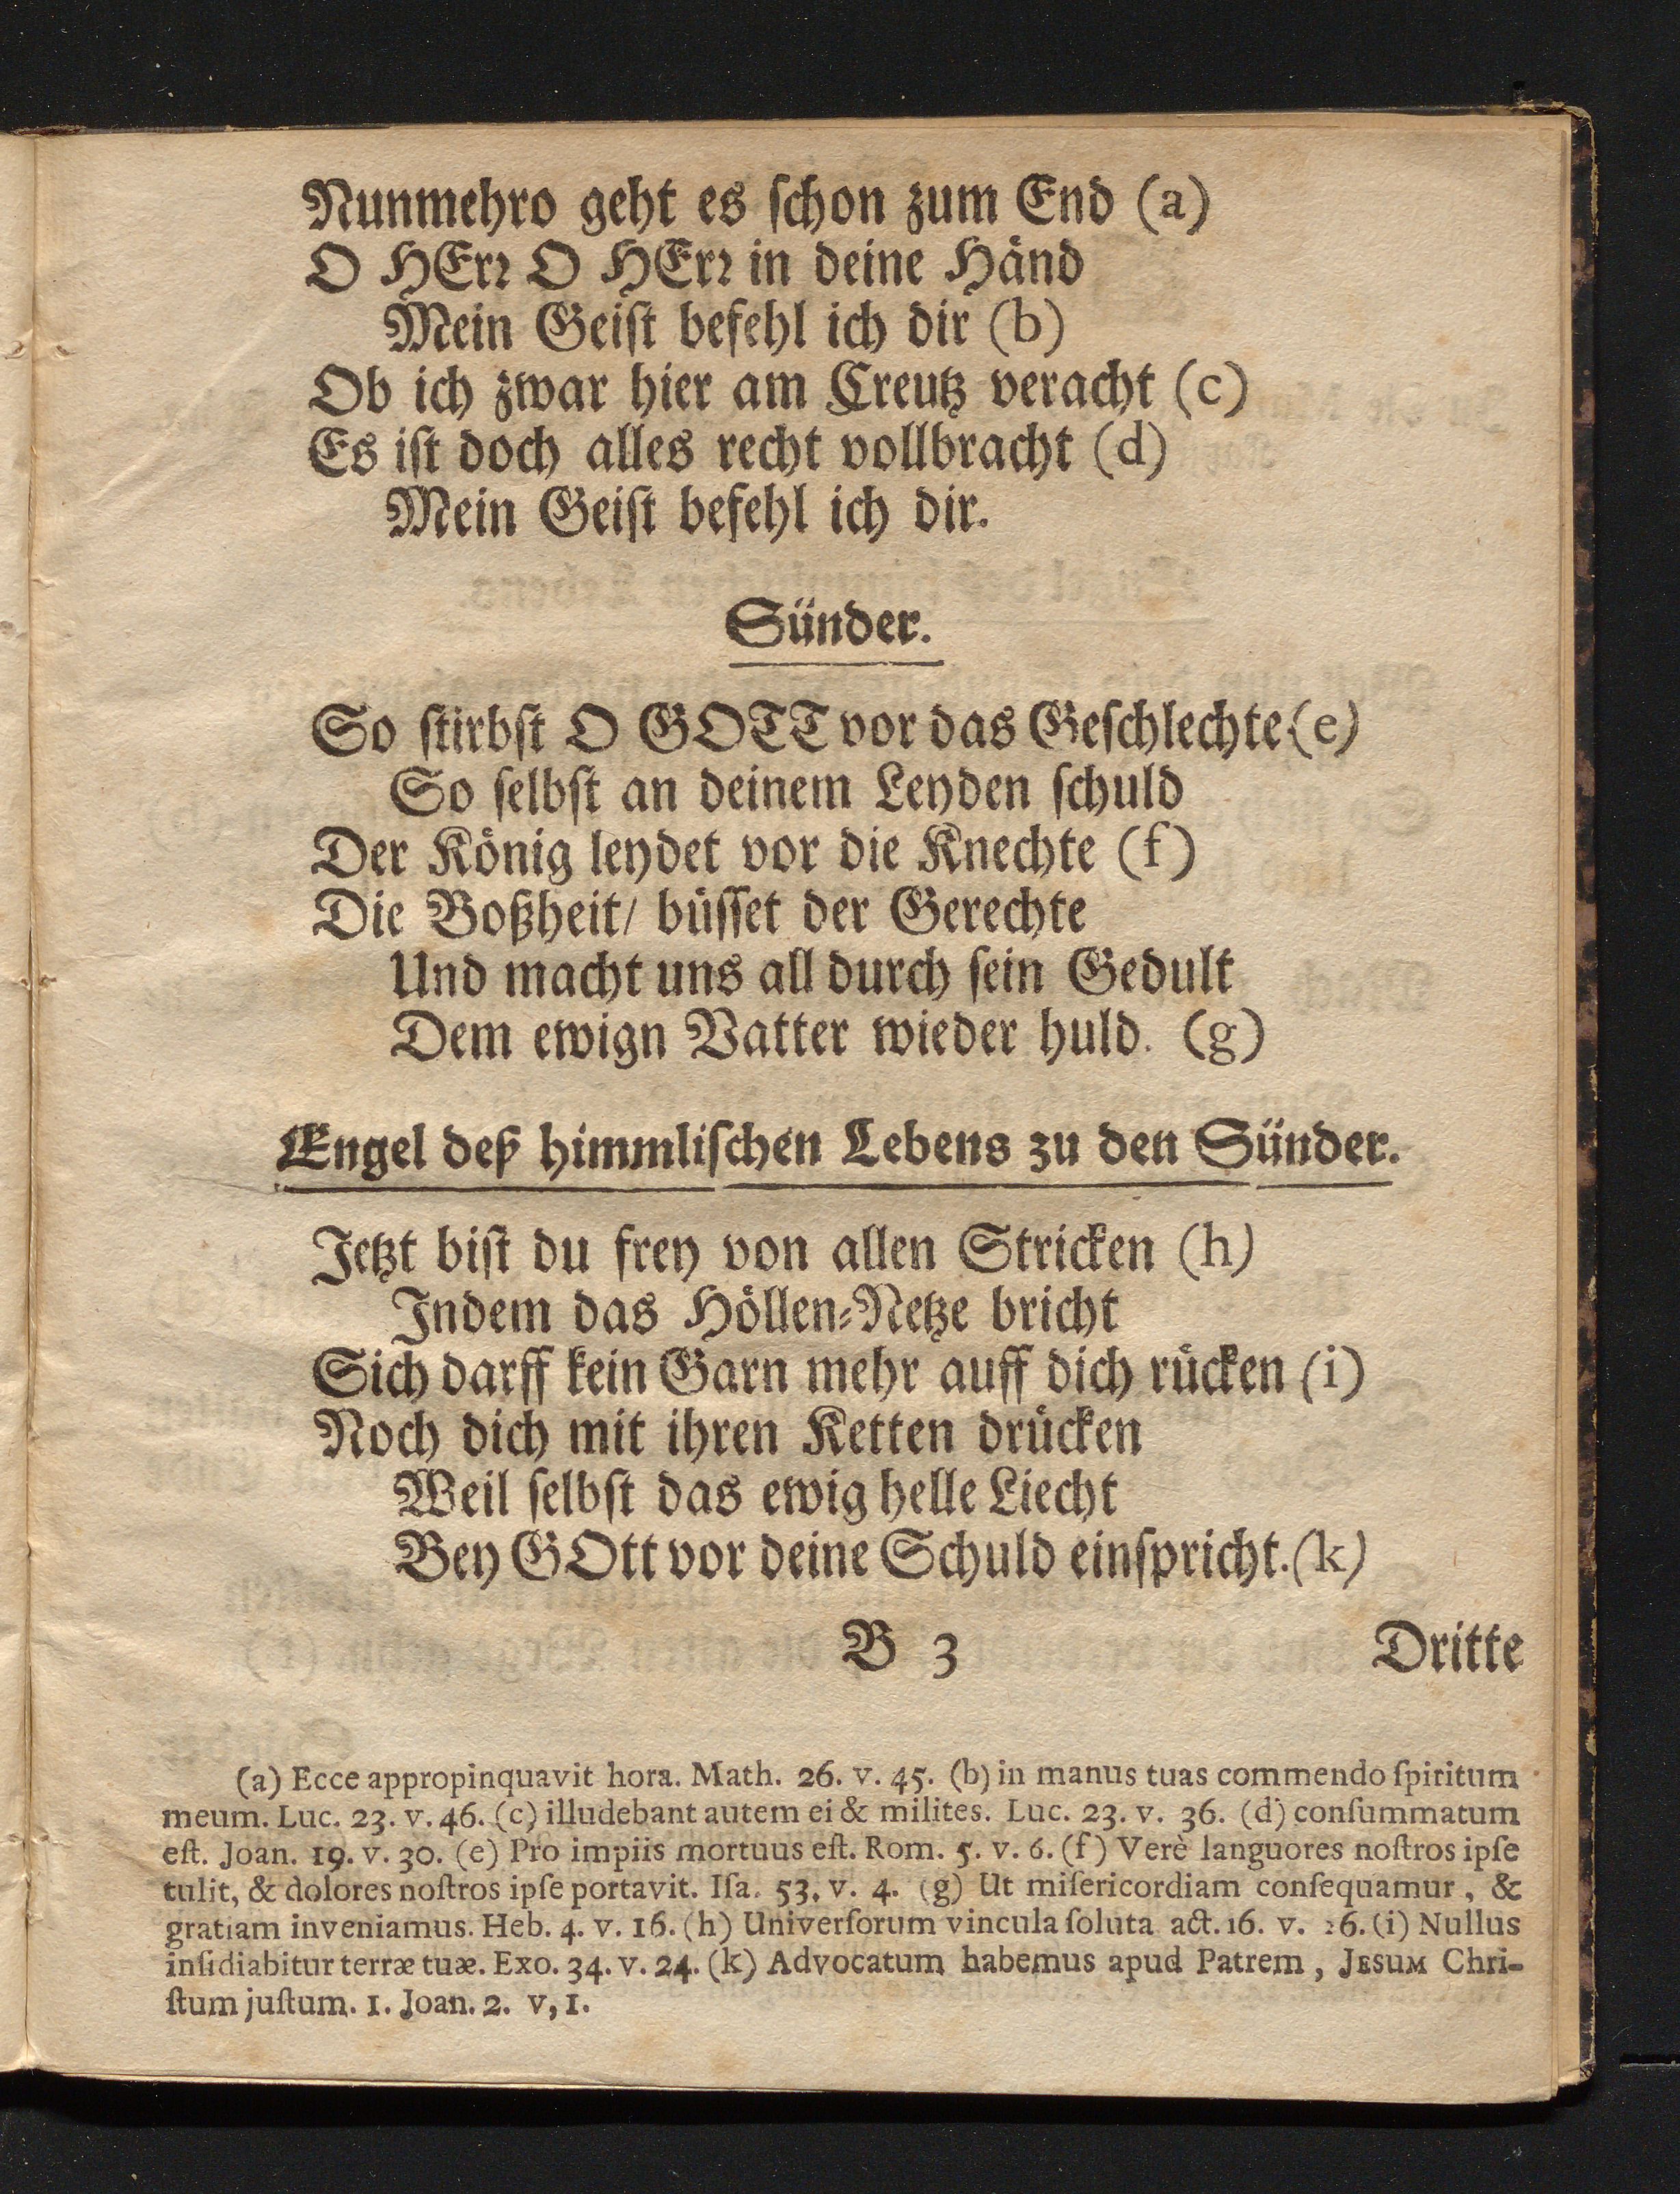 Nunmehro geht es ſchon zum End (a)
O HErꝛ O HErꝛ in deine Haͤnd
Mein Geiſt befehl ich dir (b)
Ob ich zwar hier am Creutz veracht (c)
Es iſt doch alles recht vollbracht (d)
Mein Geiſt befehl ich dir.
Sünder.
So ſtirbſt O GOTT vor das Geſchlechte (e)
So ſelbſt an deinem Leyden ſchuld
Der Koͤnig leydet vor die Knechte (f)
Die Boßheit/ buͤſſet der Gerechte
Und macht uns all durch ſein Gedult
Dem ewign Vatter wieder huld. (g)
Engel deß himmliſchen Lebens zu den Sünder.
Jetzt biſt du frey von allen Stricken (h)
Indem das Hoͤllen⸗Netze bricht
Sich darff kein Garn mehr auff dich ruͤcken (i)
Noch dich mit ihren Ketten druͤcken
Weil ſelbſt das ewig helle Liecht
Bey GOtt vor deine Schuld einſpricht. (k)
B 3 Dritte
(a) Ecce appropinquavit hora. Math. 26. v. 45. (b) in manus tuas commendo ſpiritum
meum. Luc. 23. v. 46. (c) illudebant autem ei & milites. Luc. 23. v. 36. (d) conſummatum
eſt. Joan. 19. v. 30. (e) Pro impiis mortuus eſt. Rom. 5. v. 6. (f) Verè languores noſtros ipſe
tulit, & dolores noſtros ipſe portavit. Iſa. 53. v. 4. (g) Ut miſericordiam conſequamur, &
gratiam inveniamus. Heb. 4. v. 16. (h) Univerſorum vincula ſoluta act. 16. v. 26. (i) Nullus
inſidiabitur terræ tuæ. Exo. 34. v. 24. (k) Advocatum habemus apud Patrem, JESUM Chri-
ſtum juſtum. 1. Joan. 2. v, 1.